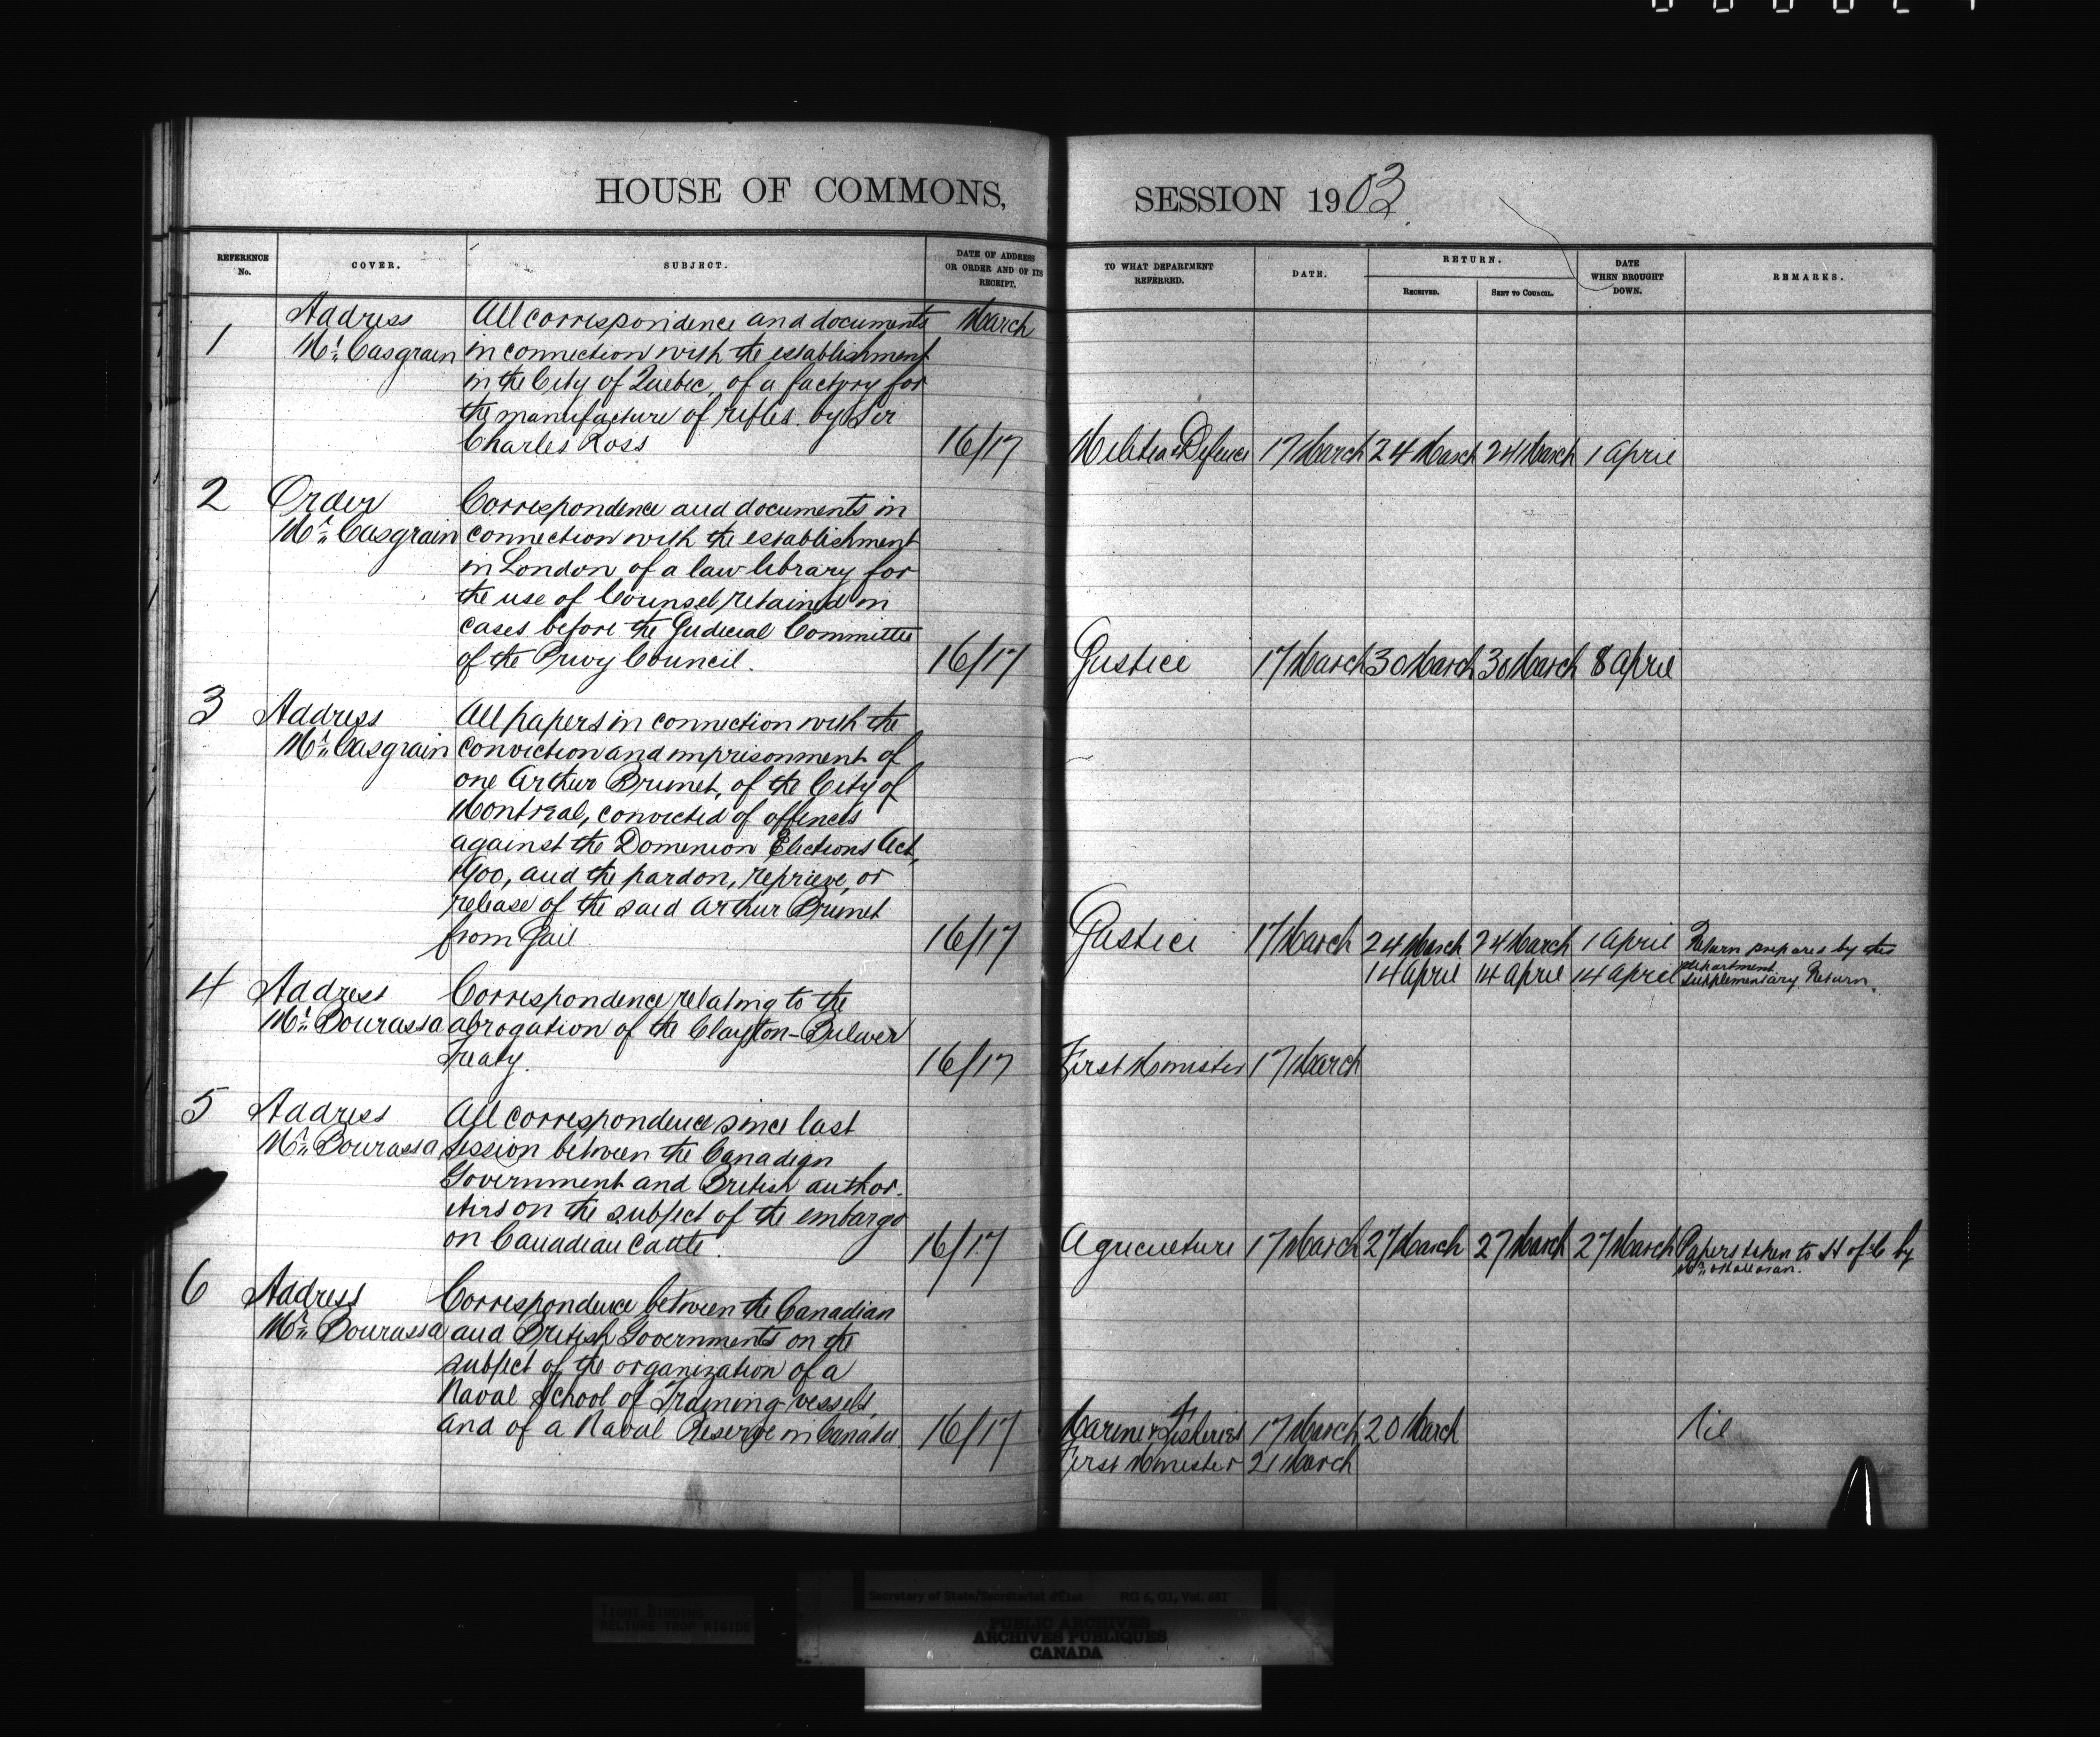 HOUSE OF COMMONS,
REFERENCE No.
COVER.
SUBJECT.
DATE OF ADDRESS OR ORDER AND OF ITS RECEIPT.
1
Address
Mr. Casgrain
All correspondence and documents
in connection with the establishment
in the City of Quebec, of a factory for
the manufacture of rifles. by Sir
Charles Ross
March
16/17
2
Order
Mr. Casgrain
Correspondence and documents in
connection with the establishment
in London of a law library for
the use of Counsel retained in
cases before the Judicial Committee
of the Privy Council.
16/17
3
Address
Mr. Casgrain
All papers in connection with the
conviction and imprisonment of
one Arthur Brunet, of the City of
Montreal, convicted of offences
against the Dominion Elections Act,
1900, and the pardon, reprieve, or
release of the said Arthur Brunet
from Gail
16/17
4
Address
Mr. Bourassa
Correspondence relating to the
abrogation of the Clayton-Bulwer
Treaty.
16/17
5
Address
Mr. Bourassa
All correspondence since last
session between the Canadian
Government and British author-
ities on the subject of the embargo
on Canadian cattle.
16/17
6
Address
Mr. Bourassa
Correspondence between the Canadian
and British Governments on the
subject of the organization of a
Naval School of Training vessels,
and of a Naval Reserve in Canada.
16/17
SESSION 1903
TO WHAT DEPARTMENT REFERRED.
DATE.
RETURN.
RECEIVED.
SENT TO COUNCIL.
DATE WHEN BROUGHT DOWN.
REMARKS.
Militia & Defence 17 March 24 March 24 March 1 April
Justice 17 March 30 March 30 March 8 April
Justice 17 March 24 March 24 March 1 April Return prepared by the
department.
14 April 14 April 14 April Supplementary Return.
First Minister 17 March
Agriculture 17 March 27 March 27 March 27 March Papers taken to H of C by
Mr.
Marine & Fisheries 17 March 20 March Nil
First Minister 21 March
TIGHT BINDING
RELIURE TROP RIGIDE
Secretary of State/Secrétariat d'État RG 6, G1, Vol. 681
PUBLIC ARCHIVES
ARCHIVES PUBLIQUES
CANADA